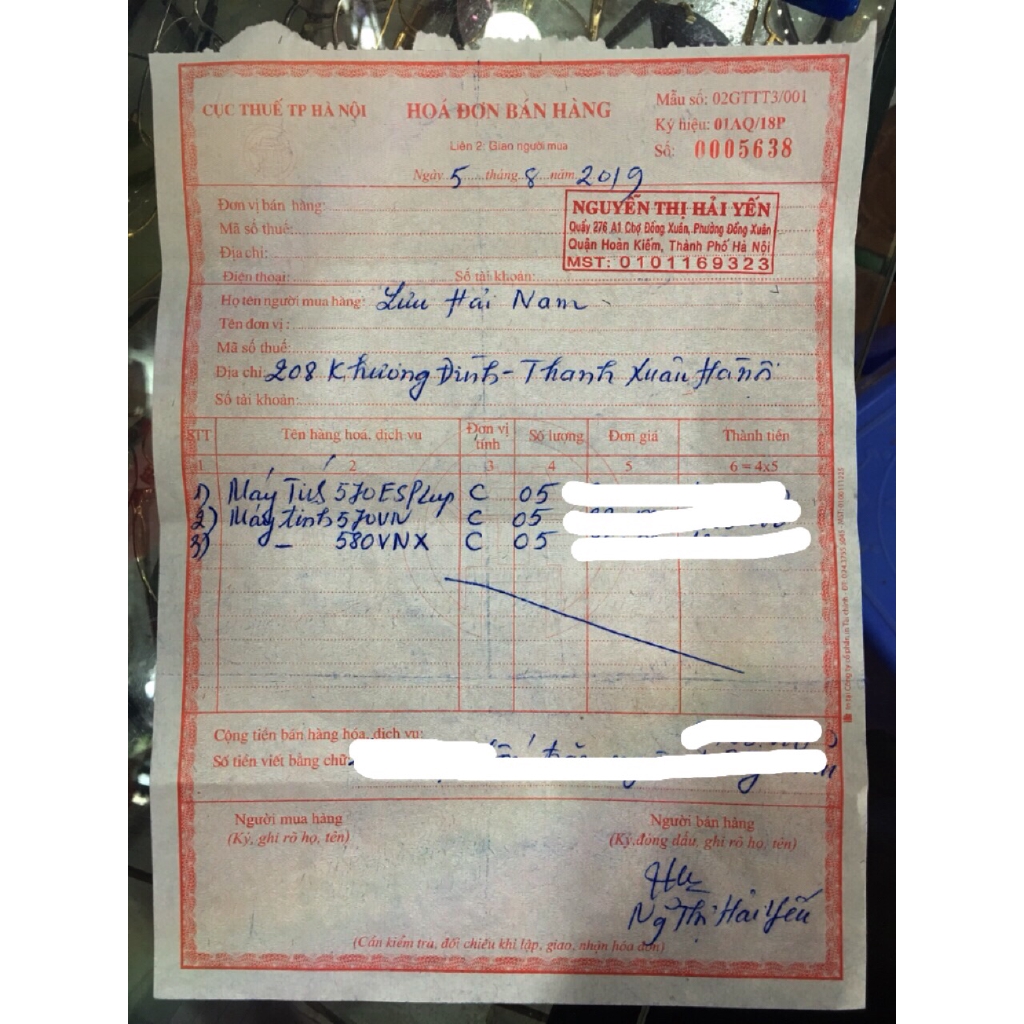 CỤC THUẾ TP HÀ NỘI
HOÁ ĐƠN BÁN HÀNG
Mẫu số: 02GTTT3/001
Ký hiệu: 01AQ/18P
Số: 0005638
Liên 2: Giao người mua
Ngày 5 tháng 8 năm 2019
Đơn vị bán hàng:
Mã số thuế:
Địa chỉ:
Điện thoại: Số tài khoản:
NGUYỄN THỊ HẢI YẾN
Quầy 276 A1 Chợ Đồng Xuân, Phường Đồng Xuân
Quận Hoàn Kiếm, Thành Phố Hà Nội
MST: 0101169323
Họ tên người mua hàng: Lưu Hải Nam
Tên đơn vị:
Mã số thuế:
Địa chỉ: 208 Khương Đình - Thanh Xuân Hà Nội
Số tài khoản:
STT Tên hàng hoá, dịch vụ Đơn vị tính Số lượng Đơn giá Thành tiền
1 2 3 4 5 6 = 4x5
1) Máy 570ES C 05
2) Máy tính 570VN C 05
3) - 580VNX C 05
Cộng tiền bán hàng hóa, dịch vụ:
Số tiền viết bằng chữ:
Người mua hàng
(Ký, ghi rõ họ, tên)
Người bán hàng
(Ký, đóng dấu, ghi rõ họ, tên)
Ng Thị Hải Yến
(Cần kiểm tra, đối chiếu khi lập, giao, nhận hóa đơn)